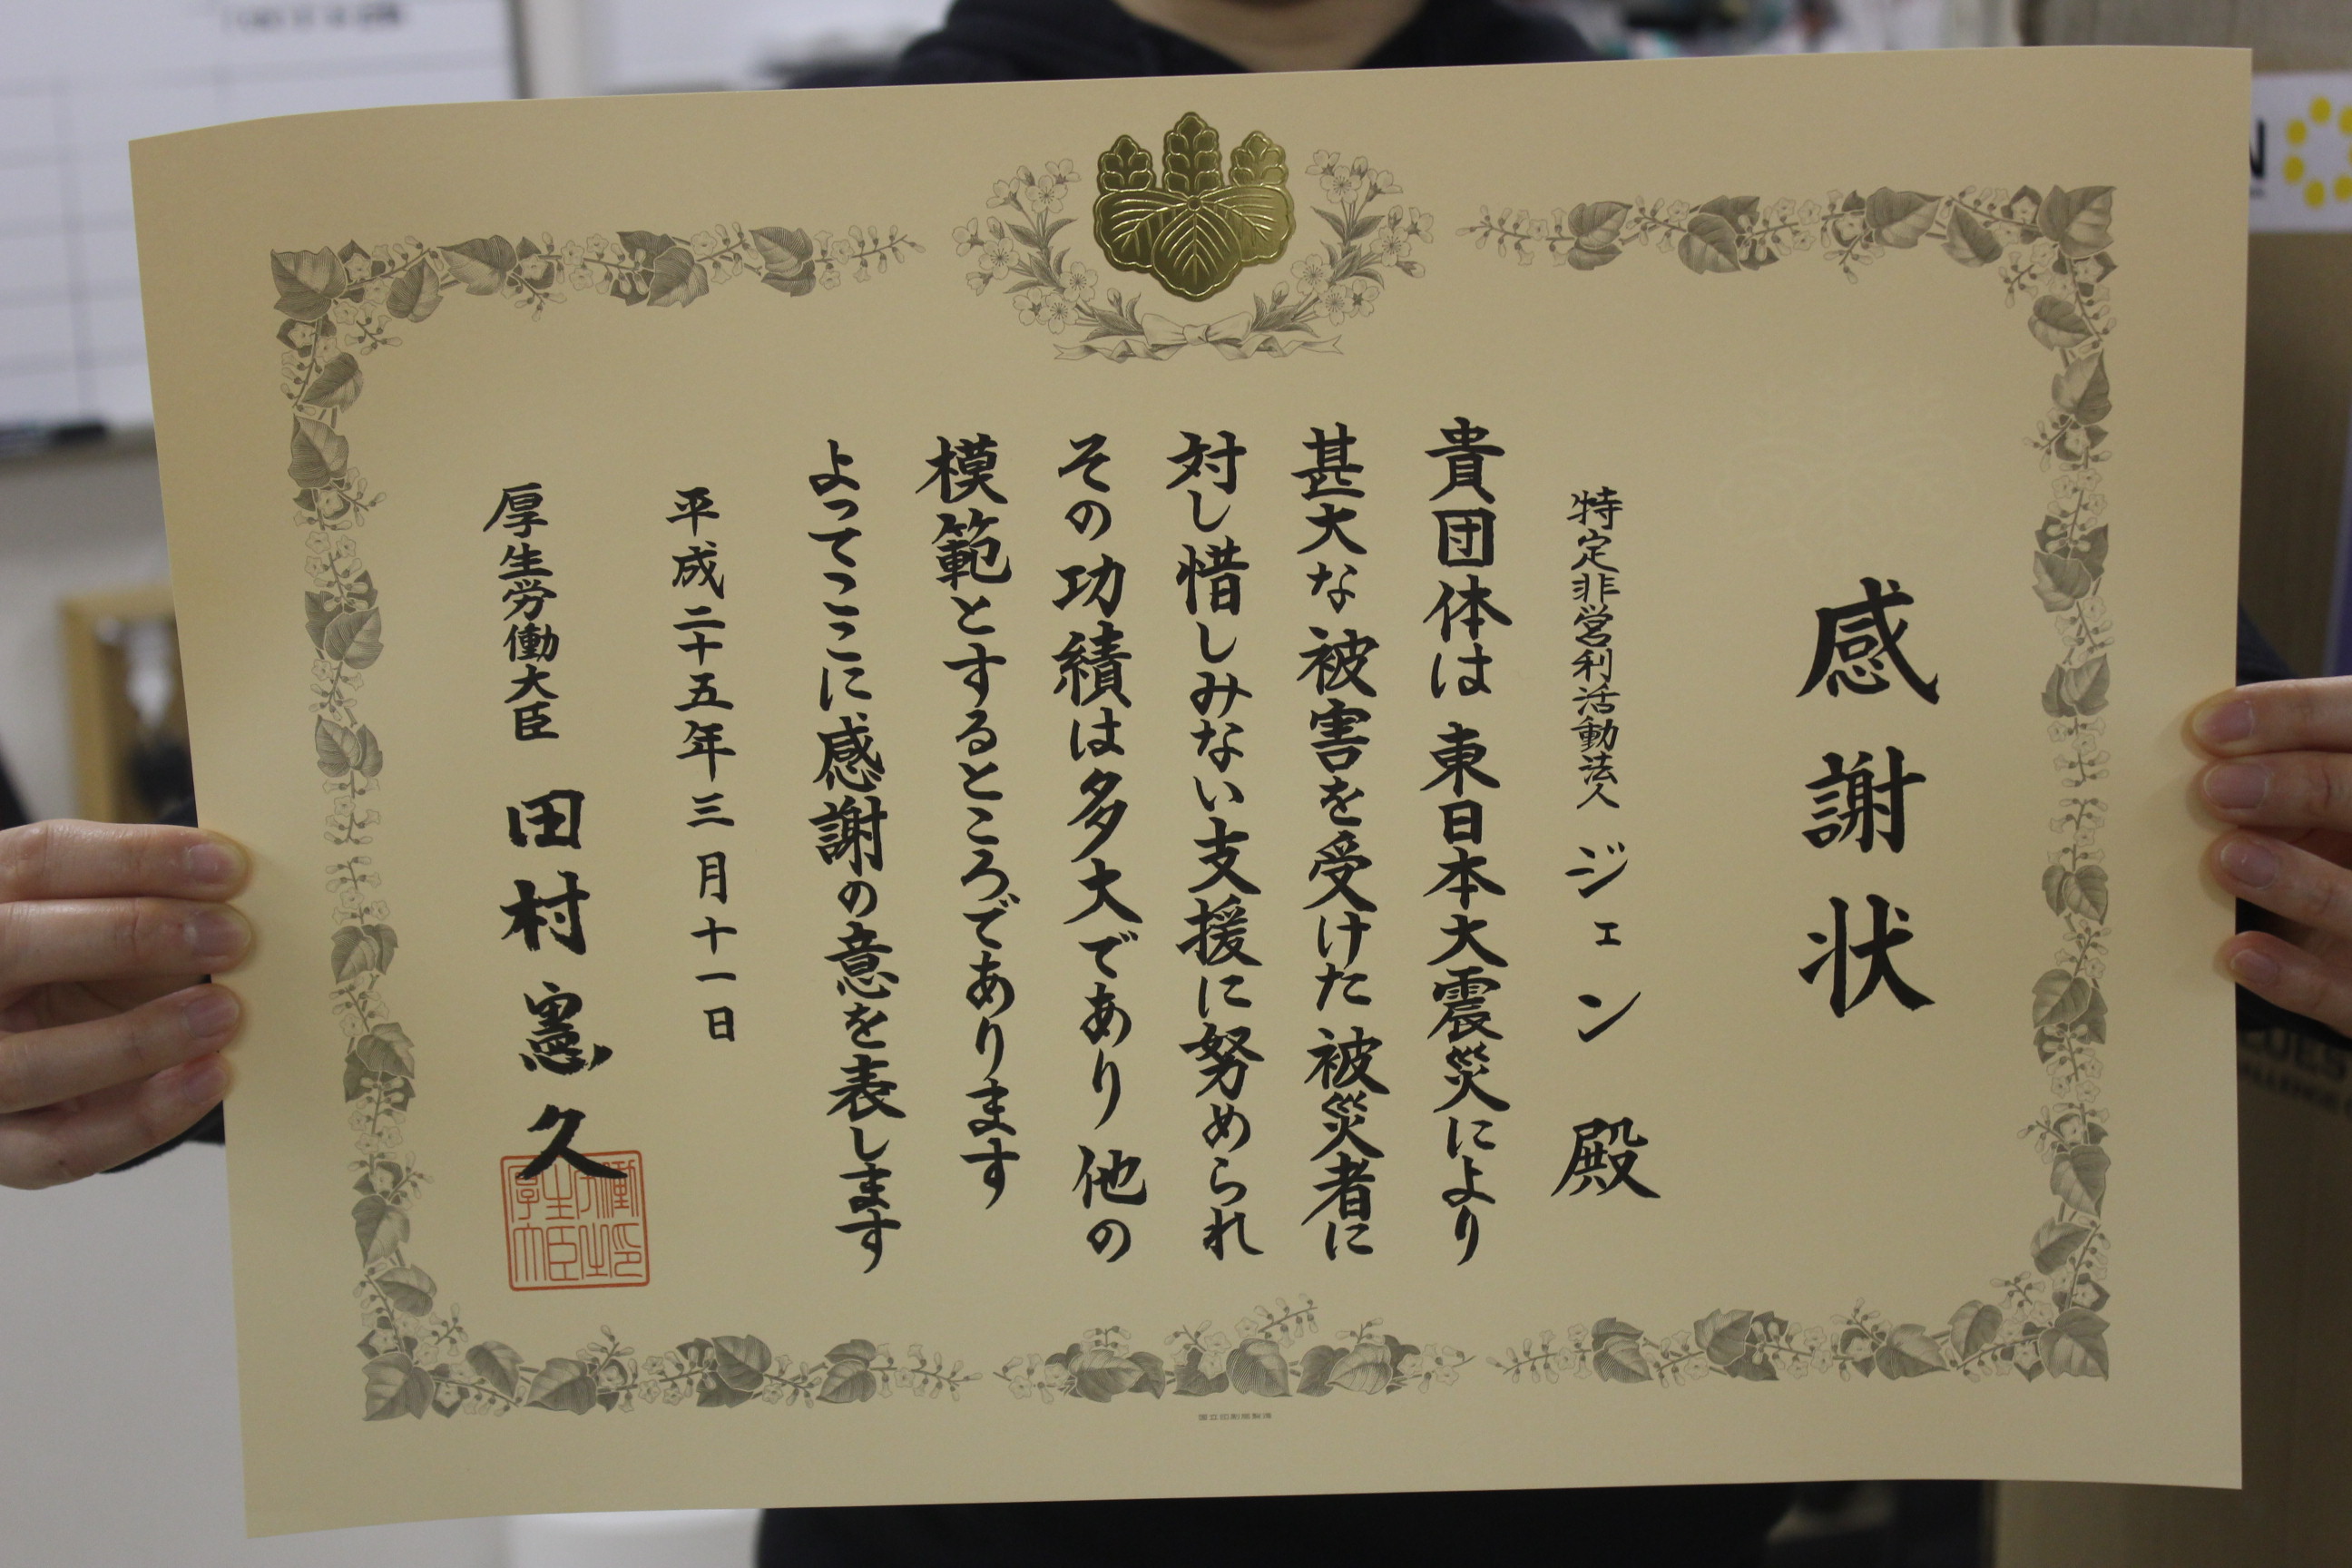 感謝状
特定非営利活動法人 ジェン 殿
貴団体は東日本大震災により
甚大な被害を受けた被災者に
対し惜しみない支援に努められ
その功績は多大であり他の
模範とするところであります
よってここに感謝の意を表します
平成二十五年三月十一日
厚生労働大臣 田村憲久
国立印刷局製造